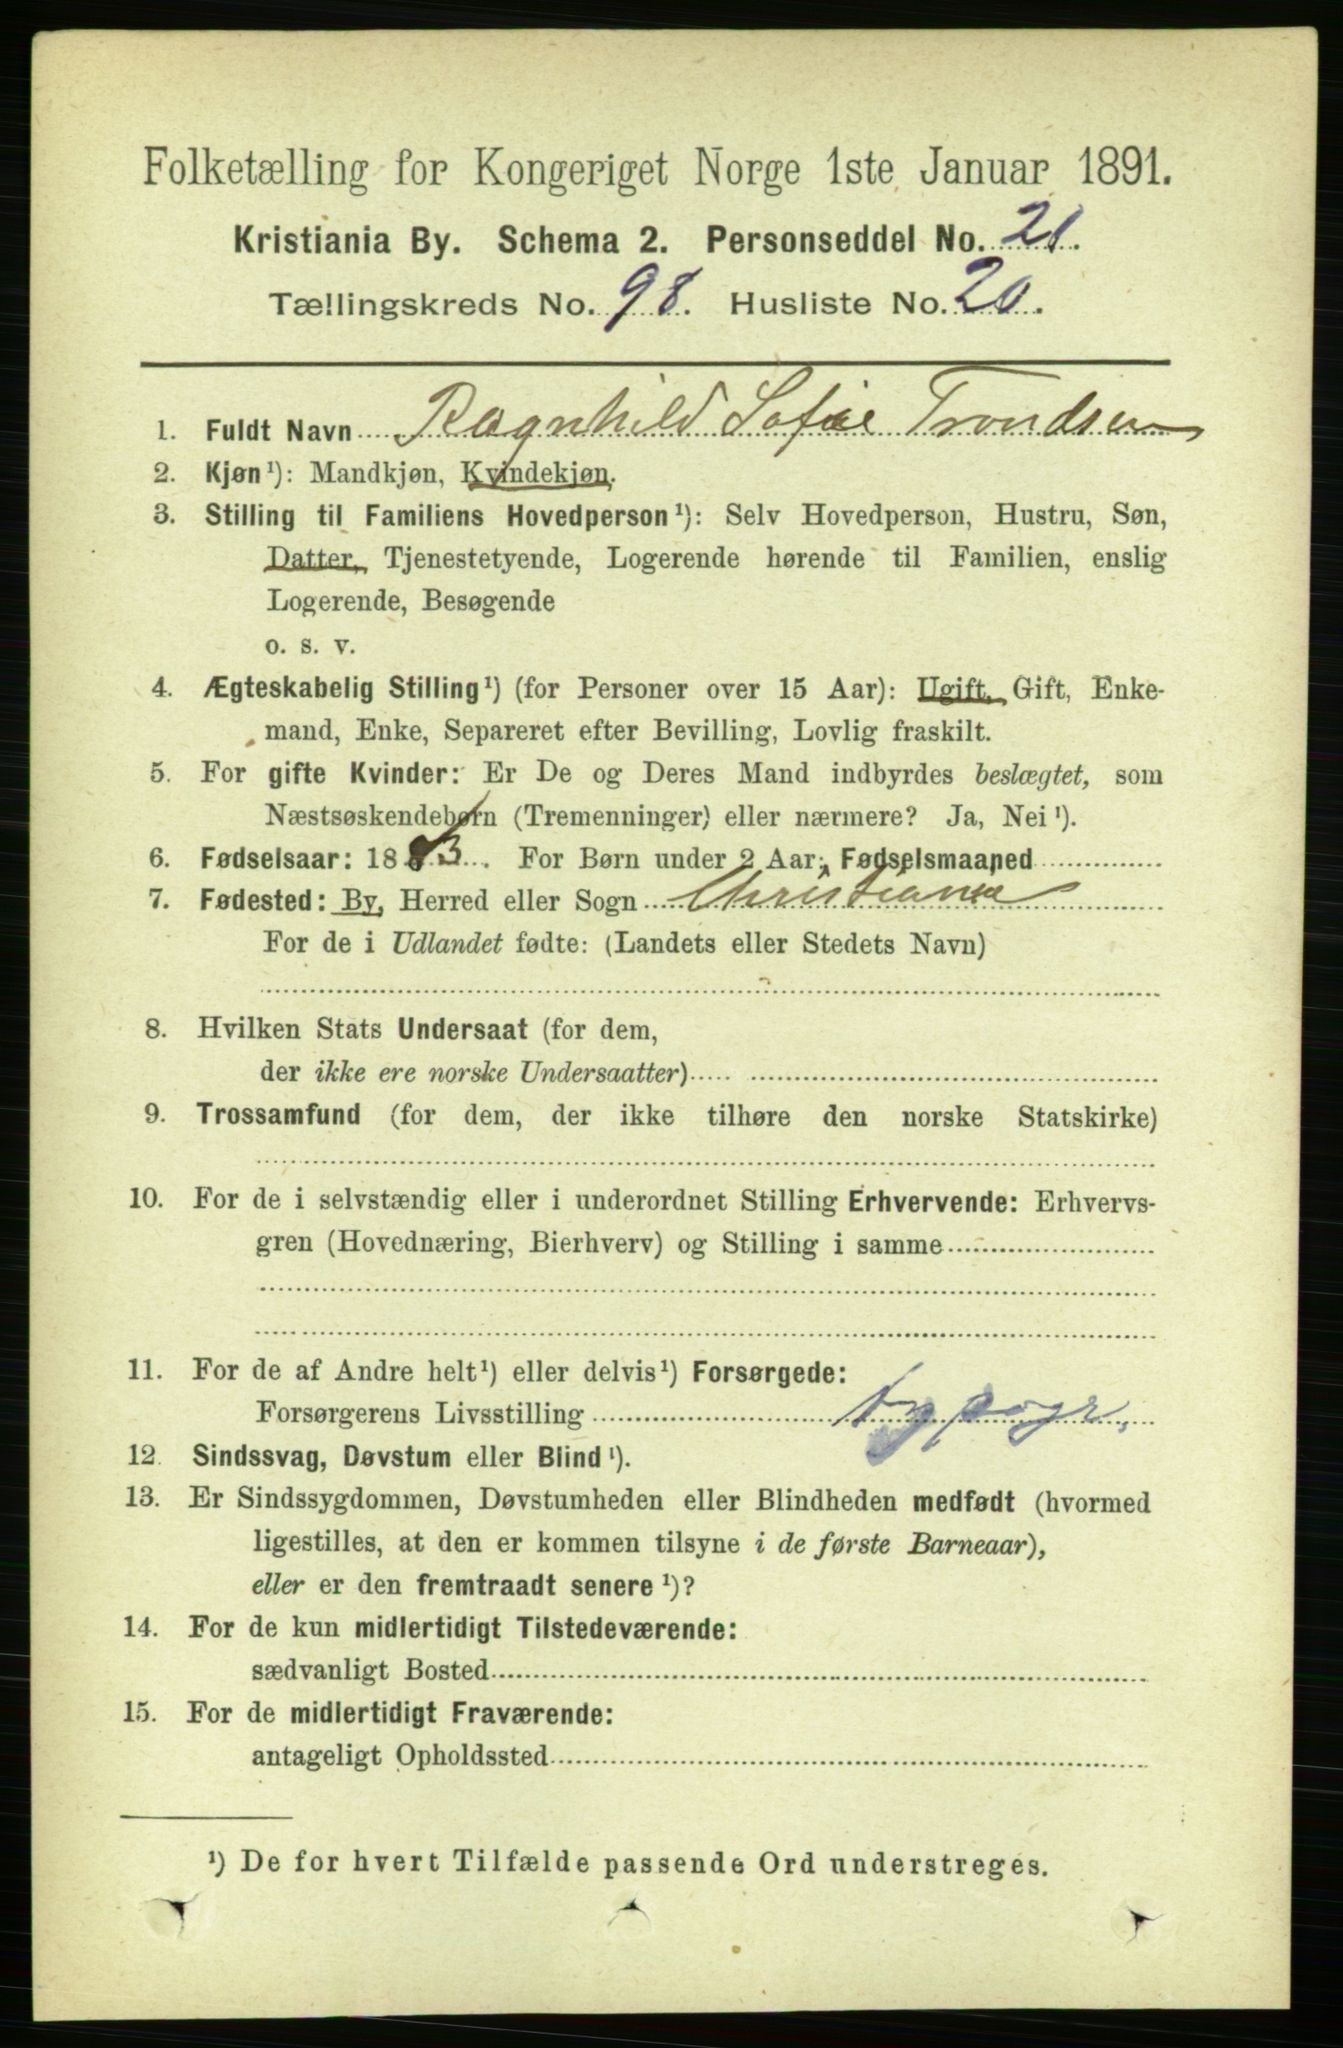 Folketælling for Kongeriget Norge 1ste Januar 1891.
Kristiania By. Schema 2. Personseddel No. 21.
Tællingskreds No. 98. Husliste No. 20.
1. Fuldt Navn Ragnhild Sofie Trondsen
2. Kjøn¹): Mandkjøn, Kvindekjøn.
3. Stilling til Familiens Hovedperson¹): Selv Hovedperson, Hustru, Søn,
Datter, Tjenestetyende, Logerende hørende til Familien, enslig
Logerende, Besøgende
o. s. v.
4. Ægteskabelig Stilling¹) (for Personer over 15 Aar): Ugift, Gift, Enke-
mand, Enke, Separeret efter Bevilling, Lovlig fraskilt.
5. For gifte Kvinder: Er De og Deres Mand indbyrdes beslægtet, som
Næstsøskendebørn (Tremenninger) eller nærmere? Ja, Nei¹).
6. Fødselsaar: 1883. For Børn under 2 Aar: Fødselsmaaned
7. Fødested: By, Herred eller Sogn Christiania
For de i Udlandet fødte: (Landets eller Stedets Navn)
8. Hvilken Stats Undersaat (for dem,
der ikke ere norske Undersaatter)
9. Trossamfund (for dem, der ikke tilhøre den norske Statskirke)
10. For de i selvstændig eller i underordnet Stilling Erhvervende: Erhvervs-
gren (Hovednæring, Bierhverv) og Stilling i samme
11. For de af Andre helt¹) eller delvis¹) Forsørgede:
Forsørgerens Livsstilling typogr.
12. Sindssvag, Døvstum eller Blind¹).
13. Er Sindssygdommen, Døvstumheden eller Blindheden medfødt (hvormed
ligestilles, at den er kommen tilsyne i de første Barneaar),
eller er den fremtraadt senere¹)?
14. For de kun midlertidigt Tilstedeværende:
sædvanligt Bosted
15. For de midlertidigt Fraværende:
antageligt Opholdssted
¹) De for hvert Tilfælde passende Ord understreges.